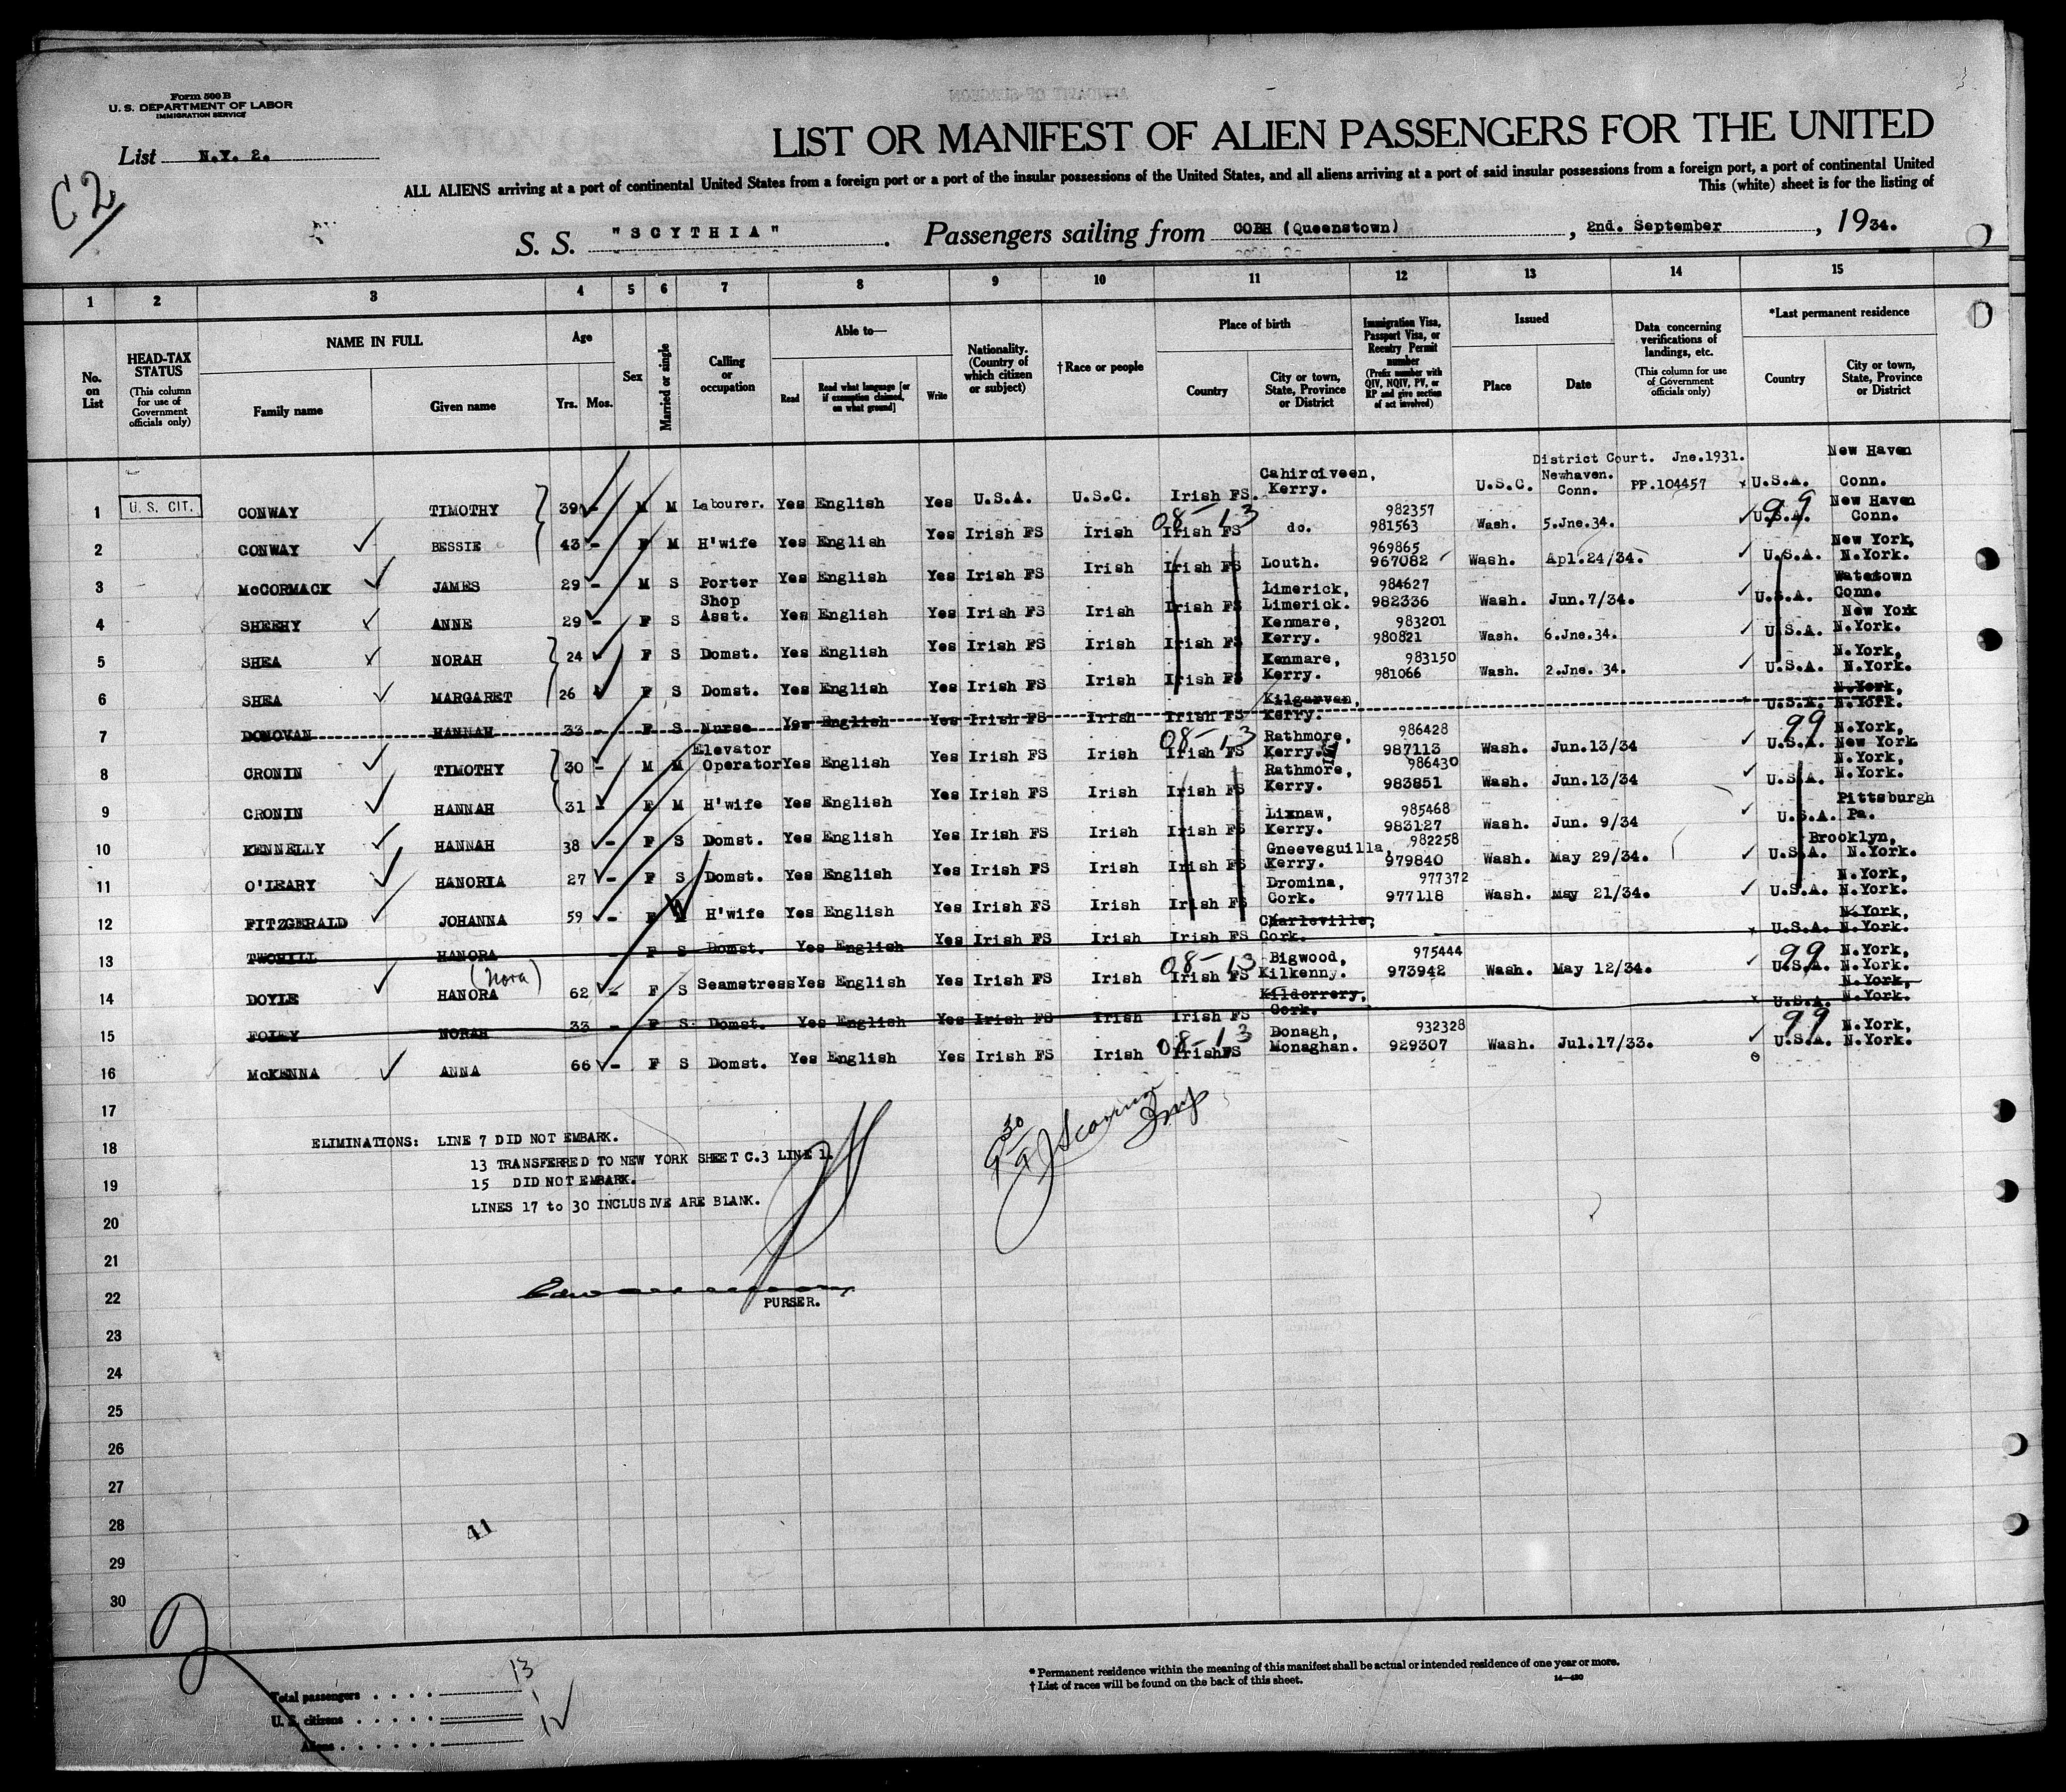 Form 500 B
U. S. DEPARTMENT OF LABOR
IMMIGRATION SERVICE
List N.Y. 2.
C2
LIST OR MANIFEST OF ALIEN PASSENGERS FOR THE UNITED
ALL ALIENS arriving at a port of continental United States from a foreign port or a port of the insular possessions of the United States, and all aliens arriving at a port of said insular possessions from a foreign port, a port of continental United
This (white) sheet is for the listing of
S. S. "SCYTHIA". Passengers sailing from COBH (Queenstown), 2nd. September, 1934.
1 2 3 4 5 6 7 8 9 10 11 12 13 14 15
No. on List
HEAD-TAX STATUS (This column for use of Government officials only)
NAME IN FULL
Family name Given name
Age
Yrs. Mos.
Sex
Married or single
Calling or occupation
Able to—
Read Read what language [or if exemption claimed, on what ground] Write
Nationality. (Country of which citizen or subject)
†Race or people
Place of birth
Country City or town, State, Province or District
Immigration Visa, Passport Visa, or Reentry Permit number (Prefix number with QIV, NQIV, PV, or RP and give section of act involved)
Issued
Place Date
Data concerning verifications of landings, etc. (This column for use of Government officials only)
*Last permanent residence
Country City or town, State, Province or District
1 U. S. CIT. CONWAY TIMOTHY 39 - M M Labourer. Yes English Yes U.S.A. U.S.C. Irish FS. Cahirciveen, Kerry. U.S.C. District Court. Newhaven. Conn. Jne.1931. PP.104457 U.S.A. New Haven Conn.
2 CONWAY BESSIE 43 - F M H'wife Yes English Yes Irish FS Irish Irish FS 08-13 do. 982357 981563 Wash. 5.Jne.34. U.S.A. 99 New Haven Conn.
3 McCORMACK JAMES 29 - M S Porter Yes English Yes Irish FS Irish Irish FS Louth. 969865 967082 Wash. Apl.24/34. U.S.A. New York, N.York.
4 SHEEHY ANNE 29 - F S Shop Asst. Yes English Yes Irish FS Irish Irish FS Limerick, Limerick. 984627 982336 Wash. Jun.7/34. U.S.A. Watetown Conn.
5 SHEA NORAH 24 F S Domst. Yes English Yes Irish FS Irish Irish FS Kenmare, Kerry. 983201 980821 Wash. 6.Jne.34. U.S.A. New York N.York.
6 SHEA MARGARET 26 F S Domst. Yes English Yes Irish FS Irish Irish FS Kenmare, Kerry. 983150 981066 Wash. 2.Jne. 34. U.S.A. N.York, N.York.
7 DONOVAN HANNAH 33 - F S Nurse Yes English Yes Irish FS Irish Irish FS Kilgarven, Kerry. U.S.A. N.York, N.York.
8 CRONIN TIMOTHY 30 - M M Elevator Operator Yes English Yes Irish FS Irish Irish FS 08-13 Rathmore, Kerry. 986428 987113 Wash. Jun.13/34 U.S.A. 99 N.York, New York
9 CRONIN HANNAH 31 - F M H'wife Yes English Yes Irish FS Irish Irish FS Rathmore, Kerry. 986430 983851 Wash. Jun.13/34 U.S.A. N.York, N.York.
10 KENNELLY HANNAH 38 - F S Domst. Yes English Yes Irish FS Irish Irish FS Lixnaw, Kerry. 985468 983127 Wash. Jun. 9/34 U.S.A. Pittsburgh Pa.
11 O'LEARY HANORIA 27 - F S Domst. Yes English Yes Irish FS Irish Irish FS Gneeveguilla, Kerry. 982258 979840 Wash. May 29/34. U.S.A. Brooklyn, N.York.
12 FITZGERALD JOHANNA 59 - F W H'wife Yes English Yes Irish FS Irish Irish FS Dromina, Cork. 977372 977118 Wash. May 21/34. U.S.A. N.York, N.York.
13 TWOHILL HANORA - F S Domst. Yes English Yes Irish FS Irish Irish FS Charleville, Cork. U.S.A. N.York, N.York.
14 DOYLE HANORA (Nora) 62 - F S Seamstress Yes English Yes Irish FS Irish Irish FS 08-13 Bigwood, Kilkenny. 975444 973942 Wash. May 12/34. U.S.A. 99 N.York, N.York.
15 FOLEY NORAH 33 - F S Domst. Yes English Yes Irish FS Irish Irish FS Kildorrery, Cork. U.S.A. N.York, N.York.
16 McKENNA ANNA 66 - F S Domst. Yes English Yes Irish FS Irish IrishFS 08-13 Donagh, Monaghan. 932328 929307 Wash. Jul.17/33. U.S.A. 99 N.York, N.York.
17
18 ELIMINATIONS: LINE 7 DID NOT EMBARK.
13 TRANSFERRED TO NEW YORK SHEET C.3 LINE 1.
19 15 DID NOT EMBARK.
LINES 17 to 30 INCLUSIVE ARE BLANK.
20
21
22
PURSER.
23
24
25
26
27
28
41
29
30
Total passengers . . . . 13
U. S. citizens . . . . . 1
Aliens . . . . . . 12
* Permanent residence within the meaning of this manifest shall be actual or intended residence of one year or more.
† List of races will be found on the back of this sheet.
14—430